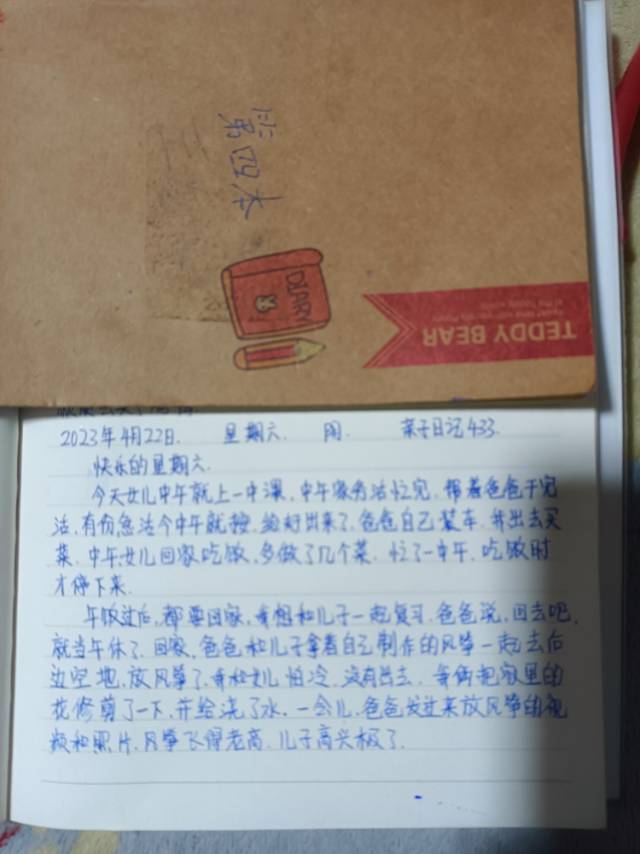 第四本
DIARY
TEDDY BEAR
2023年4月22日. 星期六. 阴. 亲子日记433.
快乐的星期六.
今天女儿中午就上一中课,中午家务活忙完,帮着爸爸干完
活,有份急活今中午就按,给好出来了.爸爸自己装车,并出去买
菜.中午女儿回家吃饭,多做了几个菜.忙了一中午,吃饭时
才停下来.
午饭过后,都要回家,我想和儿子一起复习.爸爸说,回去吧,
就当午休了.回家,爸爸和儿子拿着自己制作的风筝一起去后
边空地,放风筝了.我和女儿怕冷,没有出去.我俩把家里的
花修剪了一下,并给浇了水.一会儿,爸爸发过来放风筝的视
频和照片.风筝飞得老高,儿子高兴极了.